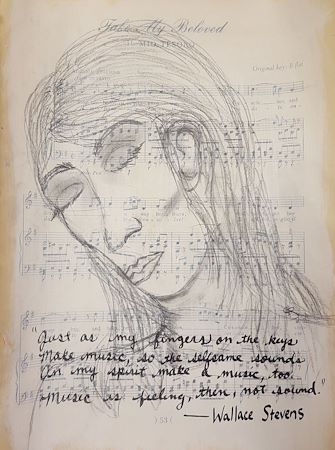 Take My Beloved
IL MIO TESORO
Original key: B flat
"Just as my fingers on the keys
Make music, so the selfsame sounds
On my spirit make a music, too.
Music is feeling, then, not sound."
— Wallace Stevens
( 53 (